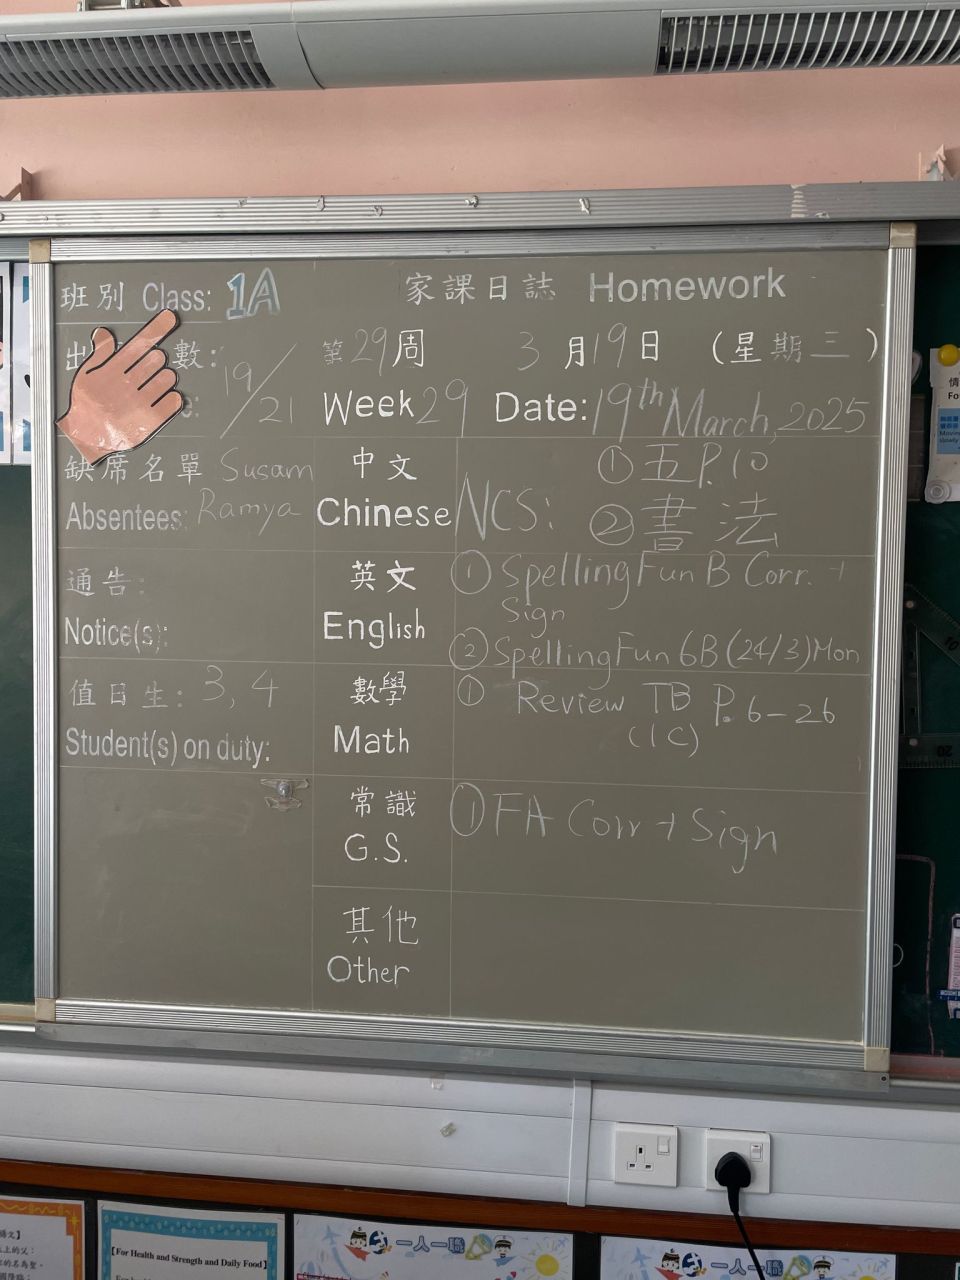 班別 Class: 1A
家課日誌 Homework
出 數: 19/21
第29周 3月19日 (星期三)
Week 29 Date: 19th March, 2025
缺席名單 Susam
Absentees: Ramya
通告:
Notice(s):
值日生: 3, 4
Student(s) on duty:
中文
Chinese
① 五 P.10
NCS: ② 書法
英文
English
① Spelling Fun B Corr. +
Sign
② Spelling Fun 6B (24/3) Mon
數學
Math
① Review TB P. 6-26
(1C)
常識
G.S.
① FA Corr + Sign
其他
Other
【For Health and Strength and Daily Food】
一人一職
一人一職